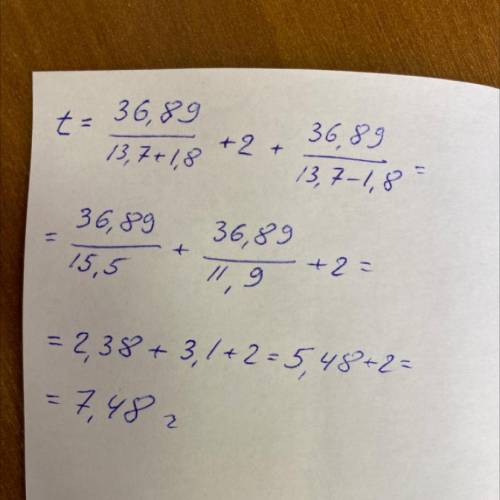 t = 36,89 / 13,7+1,8 + 2 + 36,89 / 13,7-1,8 =
= 36,89 / 15,5 + 36,89 / 11,9 + 2 =
= 2,38 + 3,1 + 2 = 5,48 + 2 =
= 7,48 г